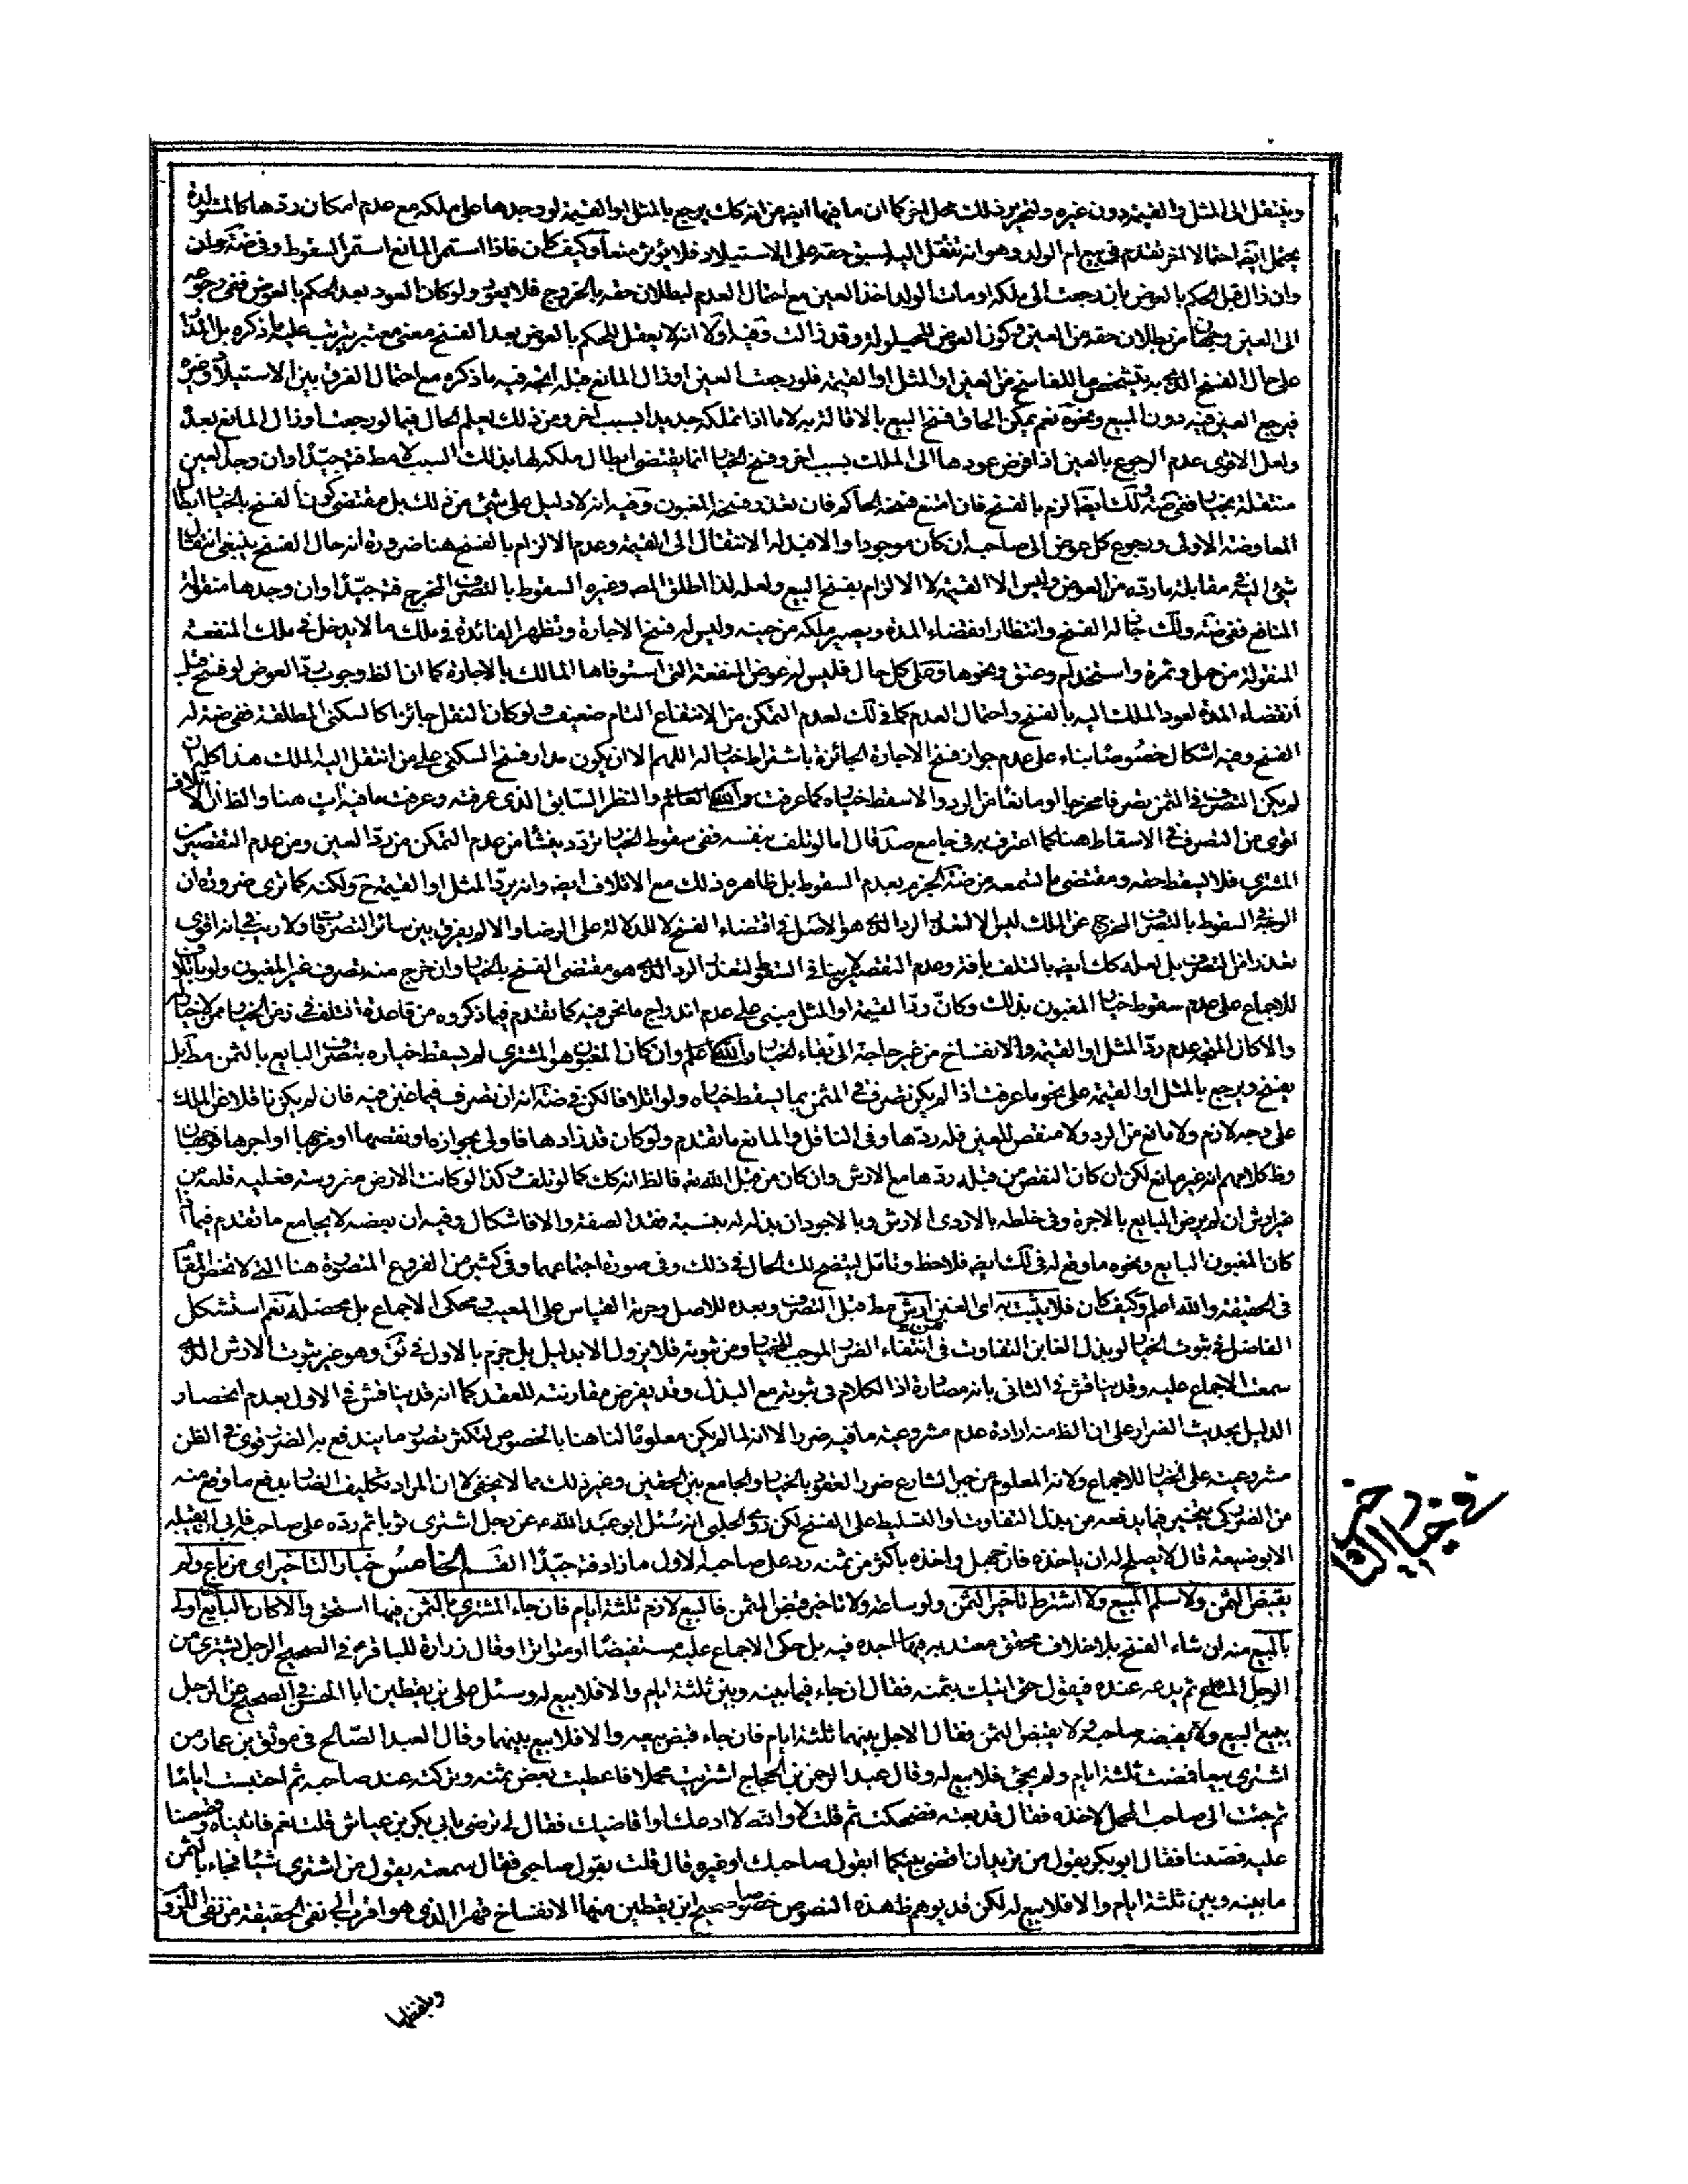 وينتقل الى المثل والقيمة دون غيره ولتحرير ذلك محل اخر كما ان ما فيها ايضا من انه كك يرجع بالمثل او القيمة لو وجدها على ملكه مع عدم امكان ردها كالمستولدة
يحتمل ايضا تقدم في بيع ام الولد وهو انه تنتقل اليه لسبق حقه على الاستيلاد فلا يؤثر منعا وكيف كان فاذا استمر المانع استمر السقوط وفي ضة وان
وان زال قبل الحكم بالعوض بان رجعت الى ملكه او مات الولد اخذ العين مع احتمال العدم لبطلان حقه بالخروج فلا يعود ولو كان العود بعد الحكم بالعوض ففي رجوعه
الى العين وجهان من بطلان حقه من العين وكون العوض للحيلولة وقد زالت وفيه اولا انه لا يعقل للحكم بالعوض بعد الفسخ معنى معتبر يترتب عليه ما ذكره بل
على حال الفسخ الذي به يتشخص ما للفاسخ من العين او المثل او القيمة فلو رجعت العين او زال المانع قبله اتجه فيه ما ذكره مع احتمال الفرق بين الاستيلاد وغيره
فيرجع العين فيه دون المبيع ونحوه نعم يمكن الحاق فسخ البيع بالاقالة به لا ما اذا تملكه جديدا بسبب اخر ومن ذلك يعلم الحال فيما لو رجعت او زال المانع بعده
ولعل الاقوى عدم الرجوع بالعين اذا فرض عودها الى الملك بسبب اخر وفسخ الخيار انما يقتضي ابطال ملكه لها بذلك السبب لا مط فته جيدا وان وجد العين
منتقلة بخيار ففي ضة ولك ايضا الزم بالفسخ فان امتنع فسخه الحاكم فان تعذر فسخه المغبون وفيه انه لا دليل على شئ من ذلك بل مقتضى كون الفسخ بالخيار ابطال
المعاوضة الاولى ورجوع كل عوض الى صاحبه ان كان موجودا والا فبدله الانتقال الى القيمة وعدم الالزام بالفسخ هنا ضرورة انه حال الفسخ ينبغي انتقال
شئ اليه مقابلة ما رده من العوض وليس الا القيمة لا الالزام بفسخ البيع ولعله لذا اطلق المص وغيره السقوط بالتصرف المخرج فته جيدا وان وجدها منقولة
المنافع ففي ضة ولك جاز له الفسخ وانتظار انقضاء المدة ويصير ملكه من حينه وليس له فسخ الاجارة وتظهر الفائدة في ملك ما لا يدخل في ملك المنفعة
المنقولة من حمل وثمرة واستخدام وعتق ونحوها وعلى كل حال فليس له عوض المنفعة التي استوفاها المالك بالاجارة كما ان الظ وجوب رد العوض لو فسخ قبل
انقضاء المدة لعود الملك اليه بالفسخ واحتمال العدم كما في لك لعدم التمكن من الانتفاع التام ضعيف ولو كان النقل جائزا كالسكنى المطلقة ففي ضة له
الفسخ وفيه اشكال خصوصا بناء على عدم جواز فسخ الاجارة الجائزة باشتراط خيار له اللهم الا ان يكون مدار فسخ السكنى على من انتقل اليه الملك هذا كله ان
لم يكن التصرف في الثمن تصرفا مخرجا او مانعا من الرد والا سقط خياره كما عرفت والله العالم والنظر السابق الذي عرفته وعرفت ما فيه ات هنا والظ ان الاتلاف
اقوى من التصرف في الاسقاط هنا كما اعترف به في جامع صد قال اما لو تلف بنفسه ففي سقوط الخيار تردد ينشأ من عدم التمكن من رد العين ومن عدم التقصير من
المشتري فلا يسقط حقه ومقتضى ما تسمعه من ضة الجزم بعدم السقوط بل ظاهره ذلك مع الاتلاف ايضه وانه يرد المثل او القيمة ح ولكنه كما ترى ضرورة ان
الوجه في السقوط بالتصرف المخرج عن الملك ليس الا لتعذر الرد الذي هو الاصل في اقتضاء الفسخ لا للدلالة على الرضا والا لم يفرق بين سائر التصرفات ولا ريب في انه اقوى
تعذرا من التصرف بل لعله كك ايضه بالتلف بافة وعدم التقصير لا ينافي السقوط لتعذر الرد الذي هو مقتضى الفسخ بالخيار وان خرج منه تصرف غير المغبون ولو باتلاف
للاجماع على عدم سقوط خيار المغبون بذلك وكان رد القيمة او المثل مبني على عدم اندراج ما نحن فيه كما تقدم فيما ذكروه من قاعدة التلف في زمن الخيار ممن لا خيار له
والا كان المتجه عدم رد المثل او القيمة والانفساخ من غير حاجة الى بقاء الخيار والله اعلم وان كان المغبون هو المشتري لم يسقط خياره بتصرف البايع بالثمن مط بل
يفسخ ويرجع بالمثل او القيمة على نحو ما عرفت اذا لم يكن تصرف في المثمن بما يسقط خياره ولو اتلافا لكن في ضة انه ان تصرف فيما غبن فيه فان لم يكن ناقلا عن الملك
على وجه لازم ولا مانع من الرد ولا منقص للعين فله ردها وفي الناقل والمانع ما تقدم ولو كان قد زادها فاولى بجوازه او نقصها او مزجها او اجرها فوجهان
وظ كلامهم انه غير مانع لكن ان كان النقص من قبله ردها مع الارش وان كان من قبل الله تعه فالظ انه كك كما لو تلفت وكذا لو كانت الارض مغروسة فعليه قلعه من
غير ارش ان لم يرض البايع بالاجرة وفي خلطه بالاردى الارش وبالاجود ان بذل له بنسبة فقد الصفة والا فاشكال وفيه ان بعضه لا يجامع ما تقدم فيما اذا
كان المغبون البايع ونحوه ما وقع له في لك ايضه فلاحظ وتامل ليتضح لك الحال في ذلك وفي صورة اجتماعهما وفي كثير من الفروع المتصورة هنا التي
في الحقيقة والله اعلم وكيف كان فلا يثبت به اى الغبن ارش مط قبل التصرف وبعده للاصل وحرمة القياس على المعيب ومحكي الاجماع بل محصله نعم استشكل
الفاضل في ثبوت الخيار لو بذل الغابن التفاوت من انتفاء الضرر الموجب للخيار ومن ثبوته فلا يزول الا بدليل بل جزم بالاول في وهو غير ثبوت الارش الذي
سمعت الاجماع عليه وقد يناقش في الثاني بانه مصادرة اذا الكلام في ثبوته مع البذل وقد يفرض مقارنته للعقد كما انه قد يناقش في الاول بعدم انحصار
الدليل بحديث الضرار على ان الظ منه ارادة عدم مشروعية ما فيه ضرر الا انه لما لم يكن معلوما لنا هنا بالخصوص لتكثر تصور ما يندفع به الضرر قوى في الظن
مشروعية على الخيار للاجماع ولانه المعلوم من جبر الشارع ضرر العقود بالخيار والجامع بين الحقين وغير ذلك مما لا يخفى لا ان المراد تكليف الضار بدفع ما وقع منه
من الضرر كي يتخير فيما يدفعه من بذل التفاوت او التسليط على الفسخ لكن روى الحلبي انه سئل ابو عبد الله ع عن رجل اشترى ثوبا ثم رده على صاحبه فابى ان يقبله
الا بوضيعة قال لا يصلح له ان ياخذه فان جهل واخذه باكثر من ثمنه رد على صاحبه الاول ما زاد فته جيدا القسم الخامس خيار التاخير اى من باع ولم
يقبض الثمن ولا سلم المبيع ولا اشترط تاخير الثمن ولو ساعة ولا تاخير قبض المثمن فالبيع لازم ثلثة ايام فان جاء المشتري بالثمن فيها استحق والا كان البايع اولى
بالمبيع منه ان شاء الفسخ بلا خلاف محقق معتد به فيها اجده فيه بل حكى الاجماع عليه مستفيضا او متواترا وقال زرارة للباقر ع في الصحيح الرجل يشتري من
الرجل المتاع ثم يدعه عنده فيقول حتى اتيك بثمنه فقال ان جاء فيما بينه وبين ثلثة ايام والا فلا بيع له وسئل علي بن يقطين ابا الحسن ع في الصحيح عن الرجل
يبيع البيع ولا يقبضه صاحبه ولا يقبض الثمن فقال الاجل بينهما ثلثة ايام فان جاء قبض بيعه والا فلا بيع بينهما وقال العبد الصالح في موثق بن عمار من
اشترى بيعا فمضت ثلثة ايام ولم يجئ فلا بيع له وقال عبد الرحمن بن الحجاج اشتريت محملا فاعطيت بعض ثمنه وتركته عند صاحبه ثم احتبست اياما
ثم جئت الى صاحب المحمل لاخذه فقال قد بعته فضحكت ثم قلت لا والله لا ادعك او اقاضيك فقال لي ترضى بابي بكر بن عياش قلت نعم فاتيناه وقصصنا
عليه قصتنا فقال ابو بكر بقول من تريد ان اقضي بينكما ابقول صاحبك او غيره قال قلت بقول صاحبي فقال سمعته يقول من اشترى شيئا فجاء بالثمن
ما بينه وبين ثلثة ايام والا فلا بيع له لكن قد يوهم ظ هذه النصوص خصوصا صحيح ابن يقطين منها الانفساخ قهرا الذي هو اقرب الى نفي الحقيقة من نفي اللزوم
في خيار التاخير